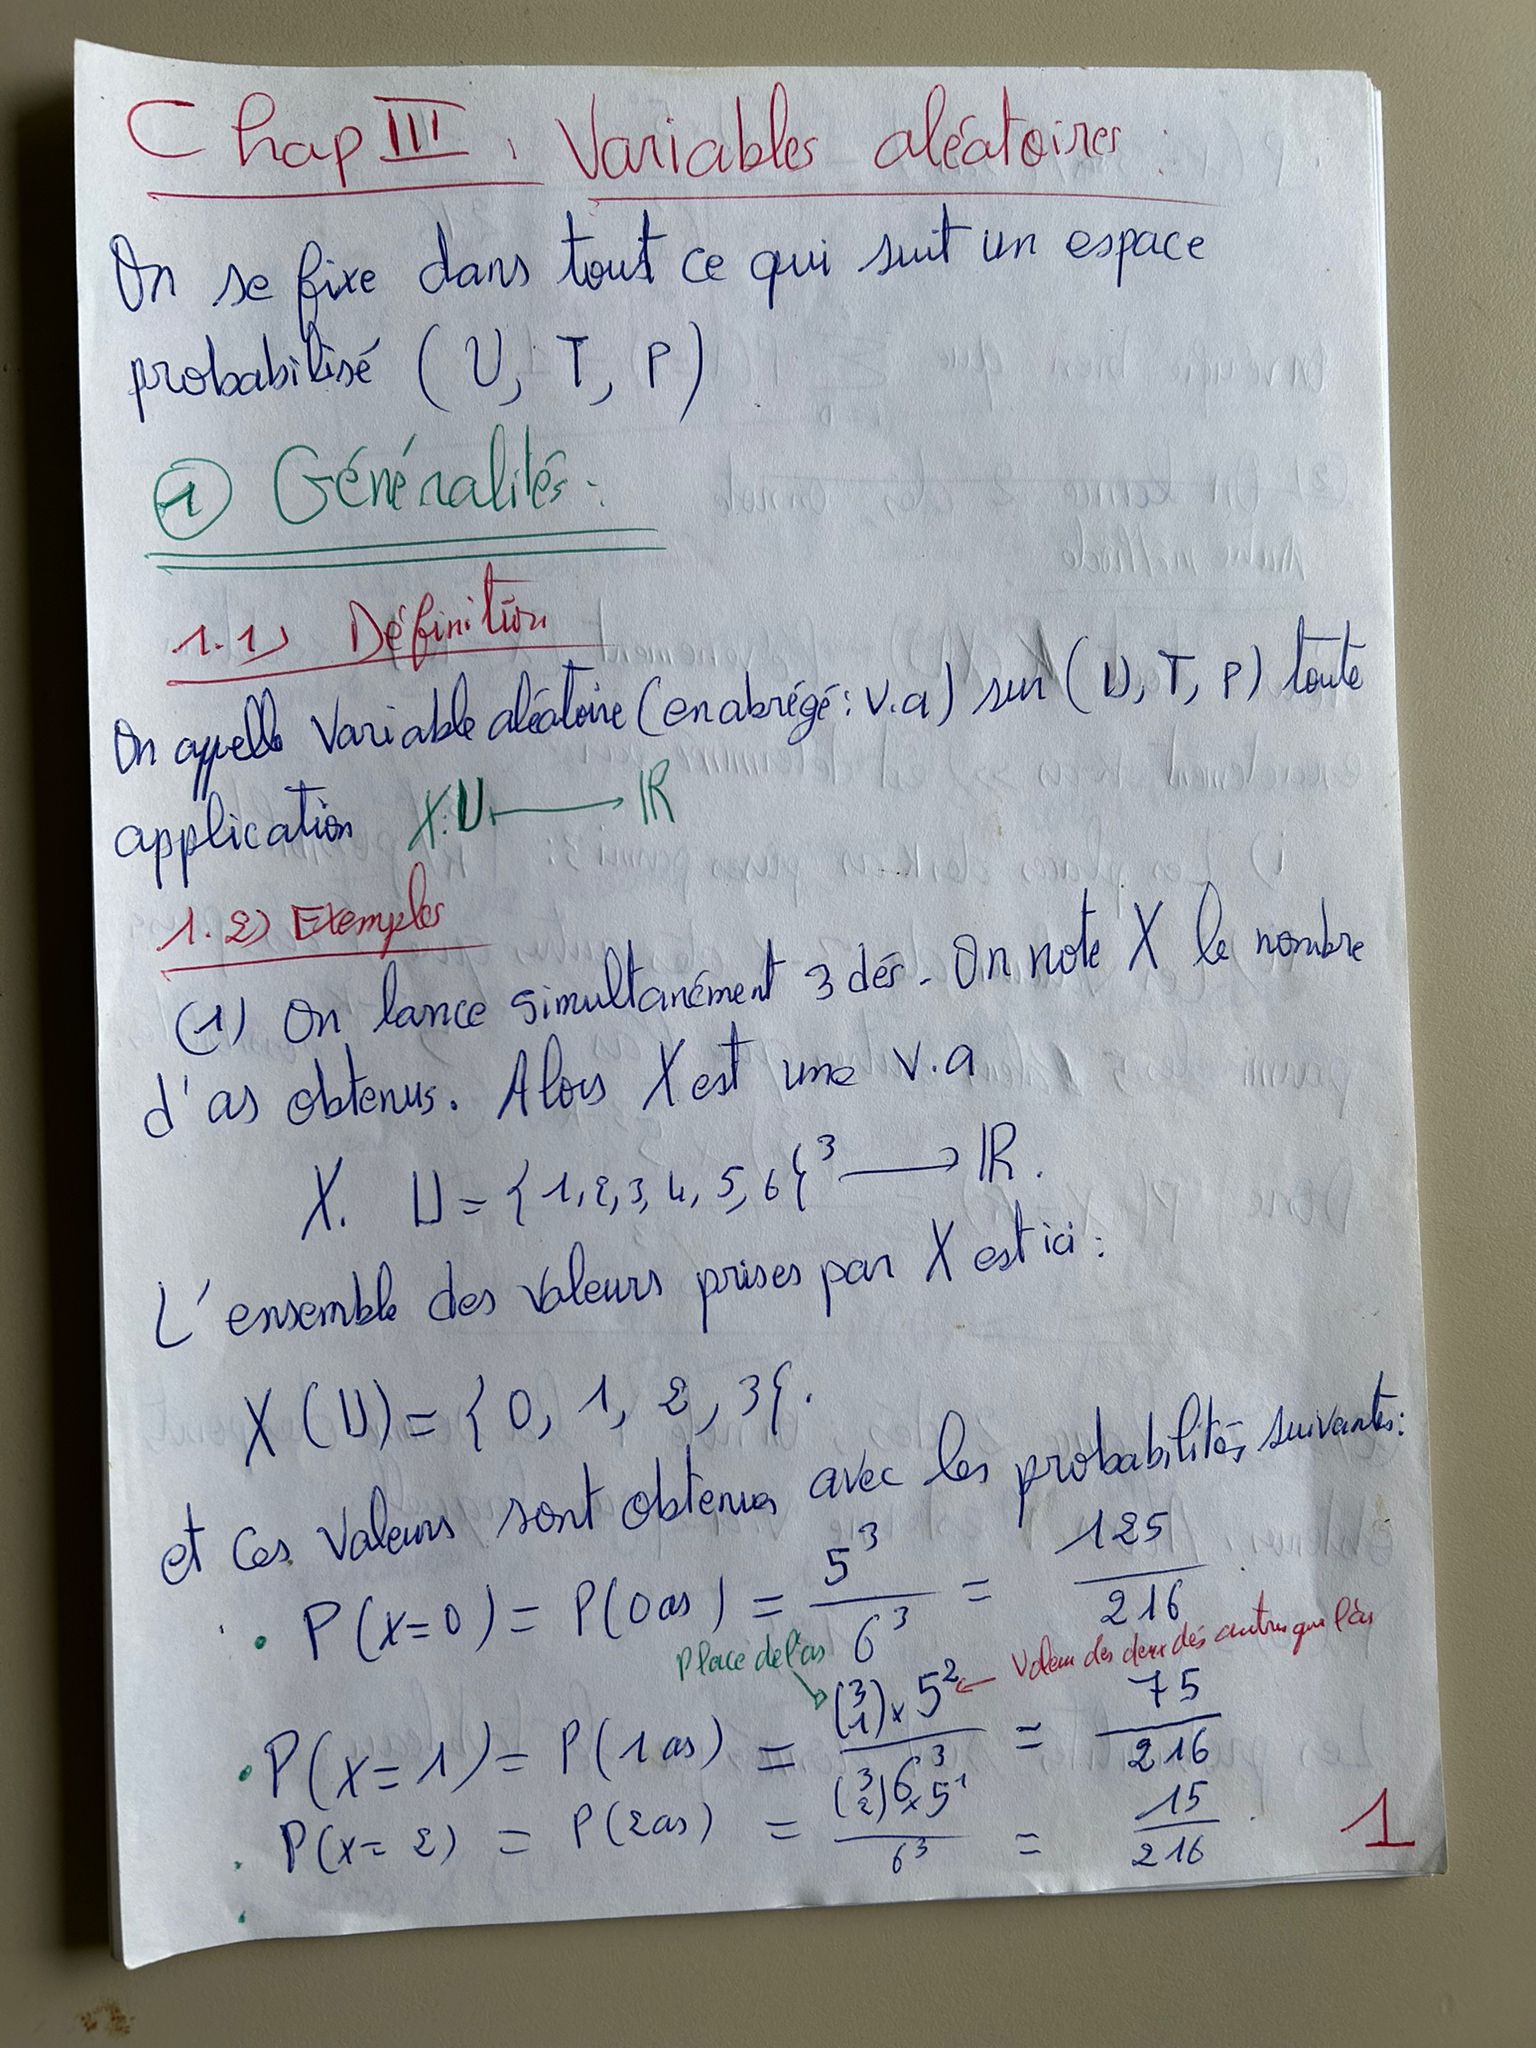 Chap III. Variables aléatoires :
On se fixe dans tout ce qui suit un espace
probabilisé (U, T, P)
① Généralités :
1.1) Définition
On appelle variable aléatoire (en abrégé : v.a) sur (U, T, P) toute
application X : U ⟶ ℝ
1.2) Exemples
(1) On lance simultanément 3 dés. On note X le nombre
d'as obtenus. Alors X est une v.a
X. U = {1, 2, 3, 4, 5, 6}³ ⟶ ℝ.
L'ensemble des valeurs prises par X est ici :
X(U) = {0, 1, 2, 3}.
et ces valeurs sont obtenues avec les probabilités suivantes :
• P(X=0) = P(0 as) = 5³/6³ = 125/216.
Place de l'as
Valeur des deux dés autres que l'as
• P(X=1) = P(1 as) = (3 1) × 5²/6³ = 75/216
• P(X=2) = P(2 as) = (3 2) × 5¹/6³ = 15/216.
1